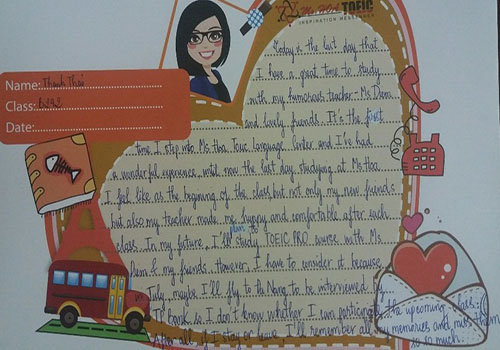 Ms HOA TOEIC
INSPIRATION MESSAGES
Name: Thanh Thai
Class:
Date:
Today is the last day that
I have a great time to study
with my humorous teacher - Ms Duom
and lovely friends. It is the first
time I step into Ms Hoa Toeic Language Center and I've had
a wonderful experience, until now the last day studying at Ms Hoa
I feel like as the beginning of the class but not only my new friends
but also my teacher made me happy and comfortable after each
class. In my future, I'll plan to study TOEIC PRO course with Ms
Duom & my friends. However, I have to consider it because
July, maybe I'll fly to Da Nang to be interviewed by
so I don't know whether I can participate the upcoming class.
After all, if I stay or leave, I'll remember all my memories and miss them
so so much.